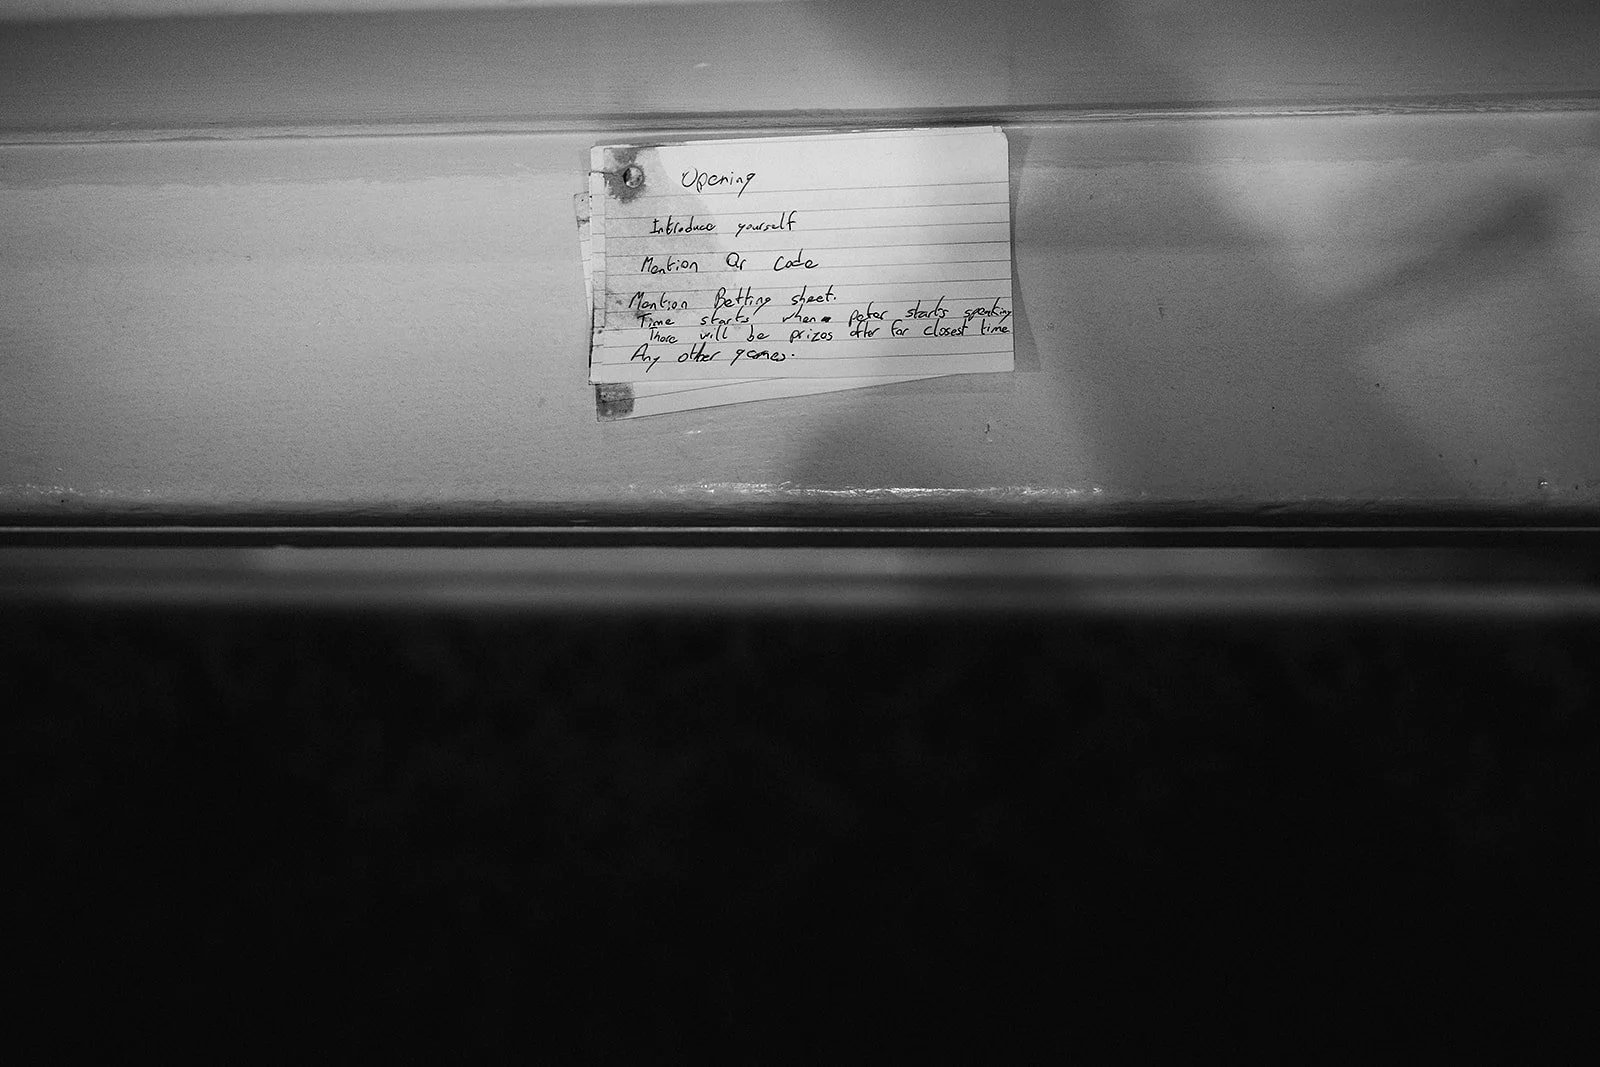 Opening
Introduce yourself
Mention Qr Code
Mention Betting sheet.
Time starts when peter starts speaking
There will be prizes after for closest time
Any other games.